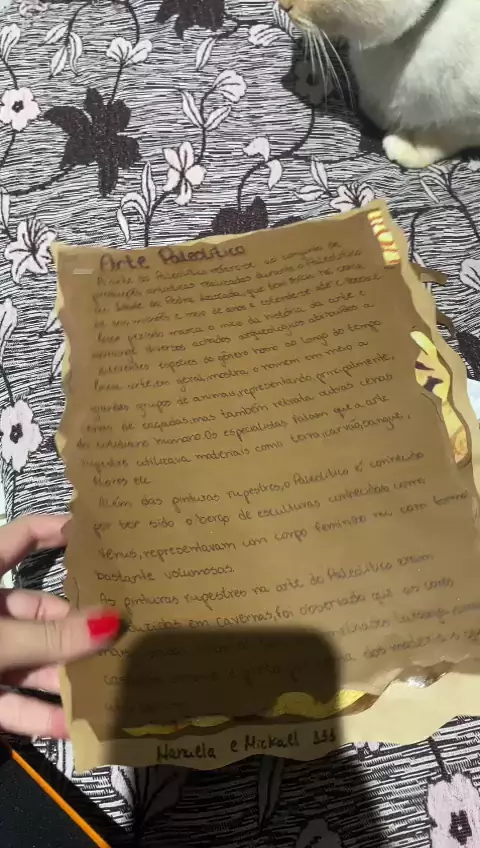 Arte Paleolítico
A arte do Paleolítico refere-se ao conjunto de
produções artísticas realizadas durante o Paleolítico
ou Idade da Pedra Lascada, que tem início há cerca
de um milhões e meio de anos e estende-se até
Esse período marca o início da história da arte e
diversos achados arqueológicos atribuídos a
diferentes espécies do gênero homo ao longo do tempo
Essa arte, em geral, mostra o homem em meio a
grandes grupos de animais, representando, principalmente,
cenas de caçadas, mas também retrata outras cenas
do cotidiano humano. Os especialistas falam que a arte
rupestre utilizava materiais como terra, carvão, sangue,
flores etc.
Além das pinturas rupestres, o Paleolítico é conhecido
por ter sido o berço de esculturas conhecidas como
Vênus, representavam um corpo feminino nu com formas
bastante volumosas.
As pinturas rupestres na arte do Paleolítico eram
produzidas em cavernas, foi observado que as cores
mais
dos materiais
Manuela e Mickaell 111